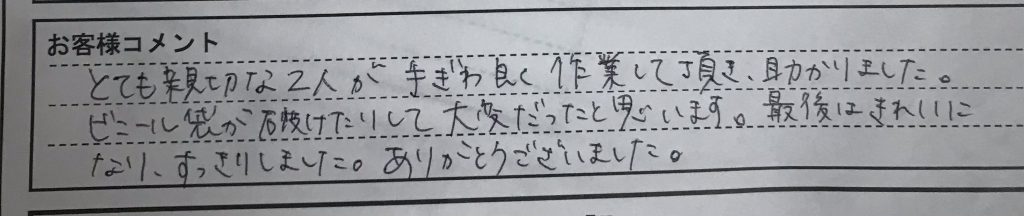 お客様コメント
とても親切な2人が 手ぎわ良く 作業して頂き、助かりました。
ビニール袋が破けたりして 大変だったと思います。最後はきれいに
なり、すっきりしました。ありがとうございました。